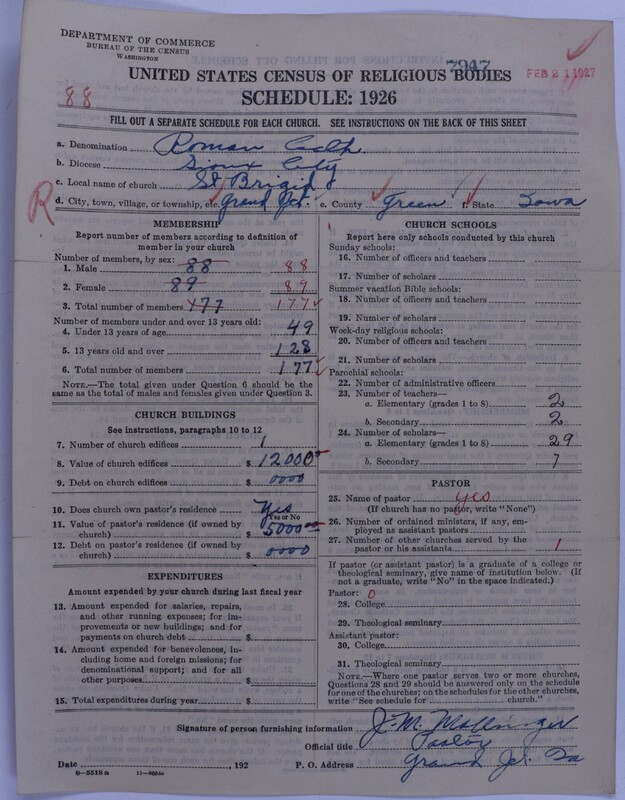 DEPARTMENT OF COMMERCE
BUREAU OF THE CENSUS
WASHINGTON
7947
FEB 21 1927
UNITED STATES CENSUS OF RELIGIOUS BODIES
88
SCHEDULE: 1926
FILL OUT A SEPARATE SCHEDULE FOR EACH CHURCH. SEE INSTRUCTIONS ON THE BACK OF THIS SHEET
a. Denomination Roman Cath.
b. Diocese Sioux City
c. Local name of church St Brigid
R d. City, town, village, or township, etc. Grand Jct. e. County Green f. State Iowa
MEMBERSHIP
Report number of members according to definition of
member in your church
Number of members, by sex:
1. Male 88 88
2. Female 89 89
3. Total number of members 177 177
Number of members under and over 13 years old:
4. Under 13 years of age 49
5. 13 years old and over 128
6. Total number of members 177
NOTE.—The total given under Question 6 should be
same as the total of males and females given under Question 3.
CHURCH BUILDINGS
See instructions, paragraphs 10 to 12
7. Number of church edifices 1
8. Value of church edifices $ 12000
9. Debt on church edifices $ 0000
10. Does church own pastor's residence Yes
Yes or No
11. Value of pastor's residence (if owned by
church) $ 5000
12. Debt on pastor's residence (if owned by
church) $ 0000
EXPENDITURES
Amount expended by your church during last fiscal year
13. Amount expended for salaries, repairs,
and other running expenses; for im-
provements or new buildings; and for
payments on church debt $
14. Amount expended for benevolences, in-
cluding home and foreign missions; for
denominational support; and for all
other purposes $
15. Total expenditures during year $
CHURCH SCHOOLS
Report here only schools conducted by this church
Sunday schools:
16. Number of officers and teachers
17. Number of scholars
Summer vacation Bible schools:
18. Number of officers and teachers
19. Number of scholars
Week-day religious schools:
20. Number of officers and teachers
21. Number of scholars
Parochial schools:
22. Number of administrative officers
23. Number of teachers—
a. Elementary (grades 1 to 8) 2
b. Secondary 2
24. Number of scholars—
a. Elementary (grades 1 to 8) 29
b. Secondary 7
PASTOR
25. Name of pastor yes
(If church has no pastor, write "None")
26. Number of ordained ministers, if any, em-
ployed as assistant pastors
27. Number of other churches served by the
pastor or his assistants 1
If pastor (or assistant pastor) is a graduate of a college or
theological seminary, give name of institution below. (If
not a graduate, write "No" in the space indicated.)
Pastor: 0
28. College
29. Theological seminary
Assistant pastor:
30. College
31. Theological seminary
NOTE.—Where one pastor serves two or more churches,
Questions 28 and 29 should be answered only on the schedule
for one of the churches; on the schedules for the other churches,
write "See schedule for church."
Signature of person furnishing information J. M.
Official title Pastor
Date , 192 P. O. Address Grand Jct. Ia
8-5518 a